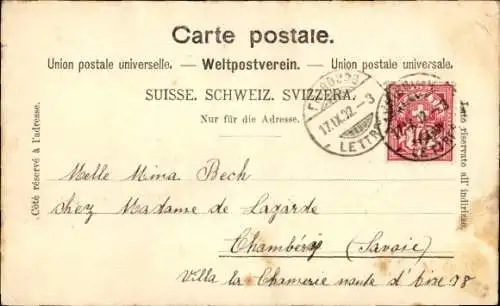 Carte postale.
Union postale universelle. — Weltpostverein. — Union postale universale.
SUISSE. SCHWEIZ. SVIZZERA.
Nur für die Adresse.
Côté réservé à l'adresse.
Lato riservato all' indirizzo.
17.IX.02.-3
LETTR
10
Melle Mina Bech
chez Madame de Lagarde
Chambéry (Savoie)
Villa la Chamerie route d'Aix 98